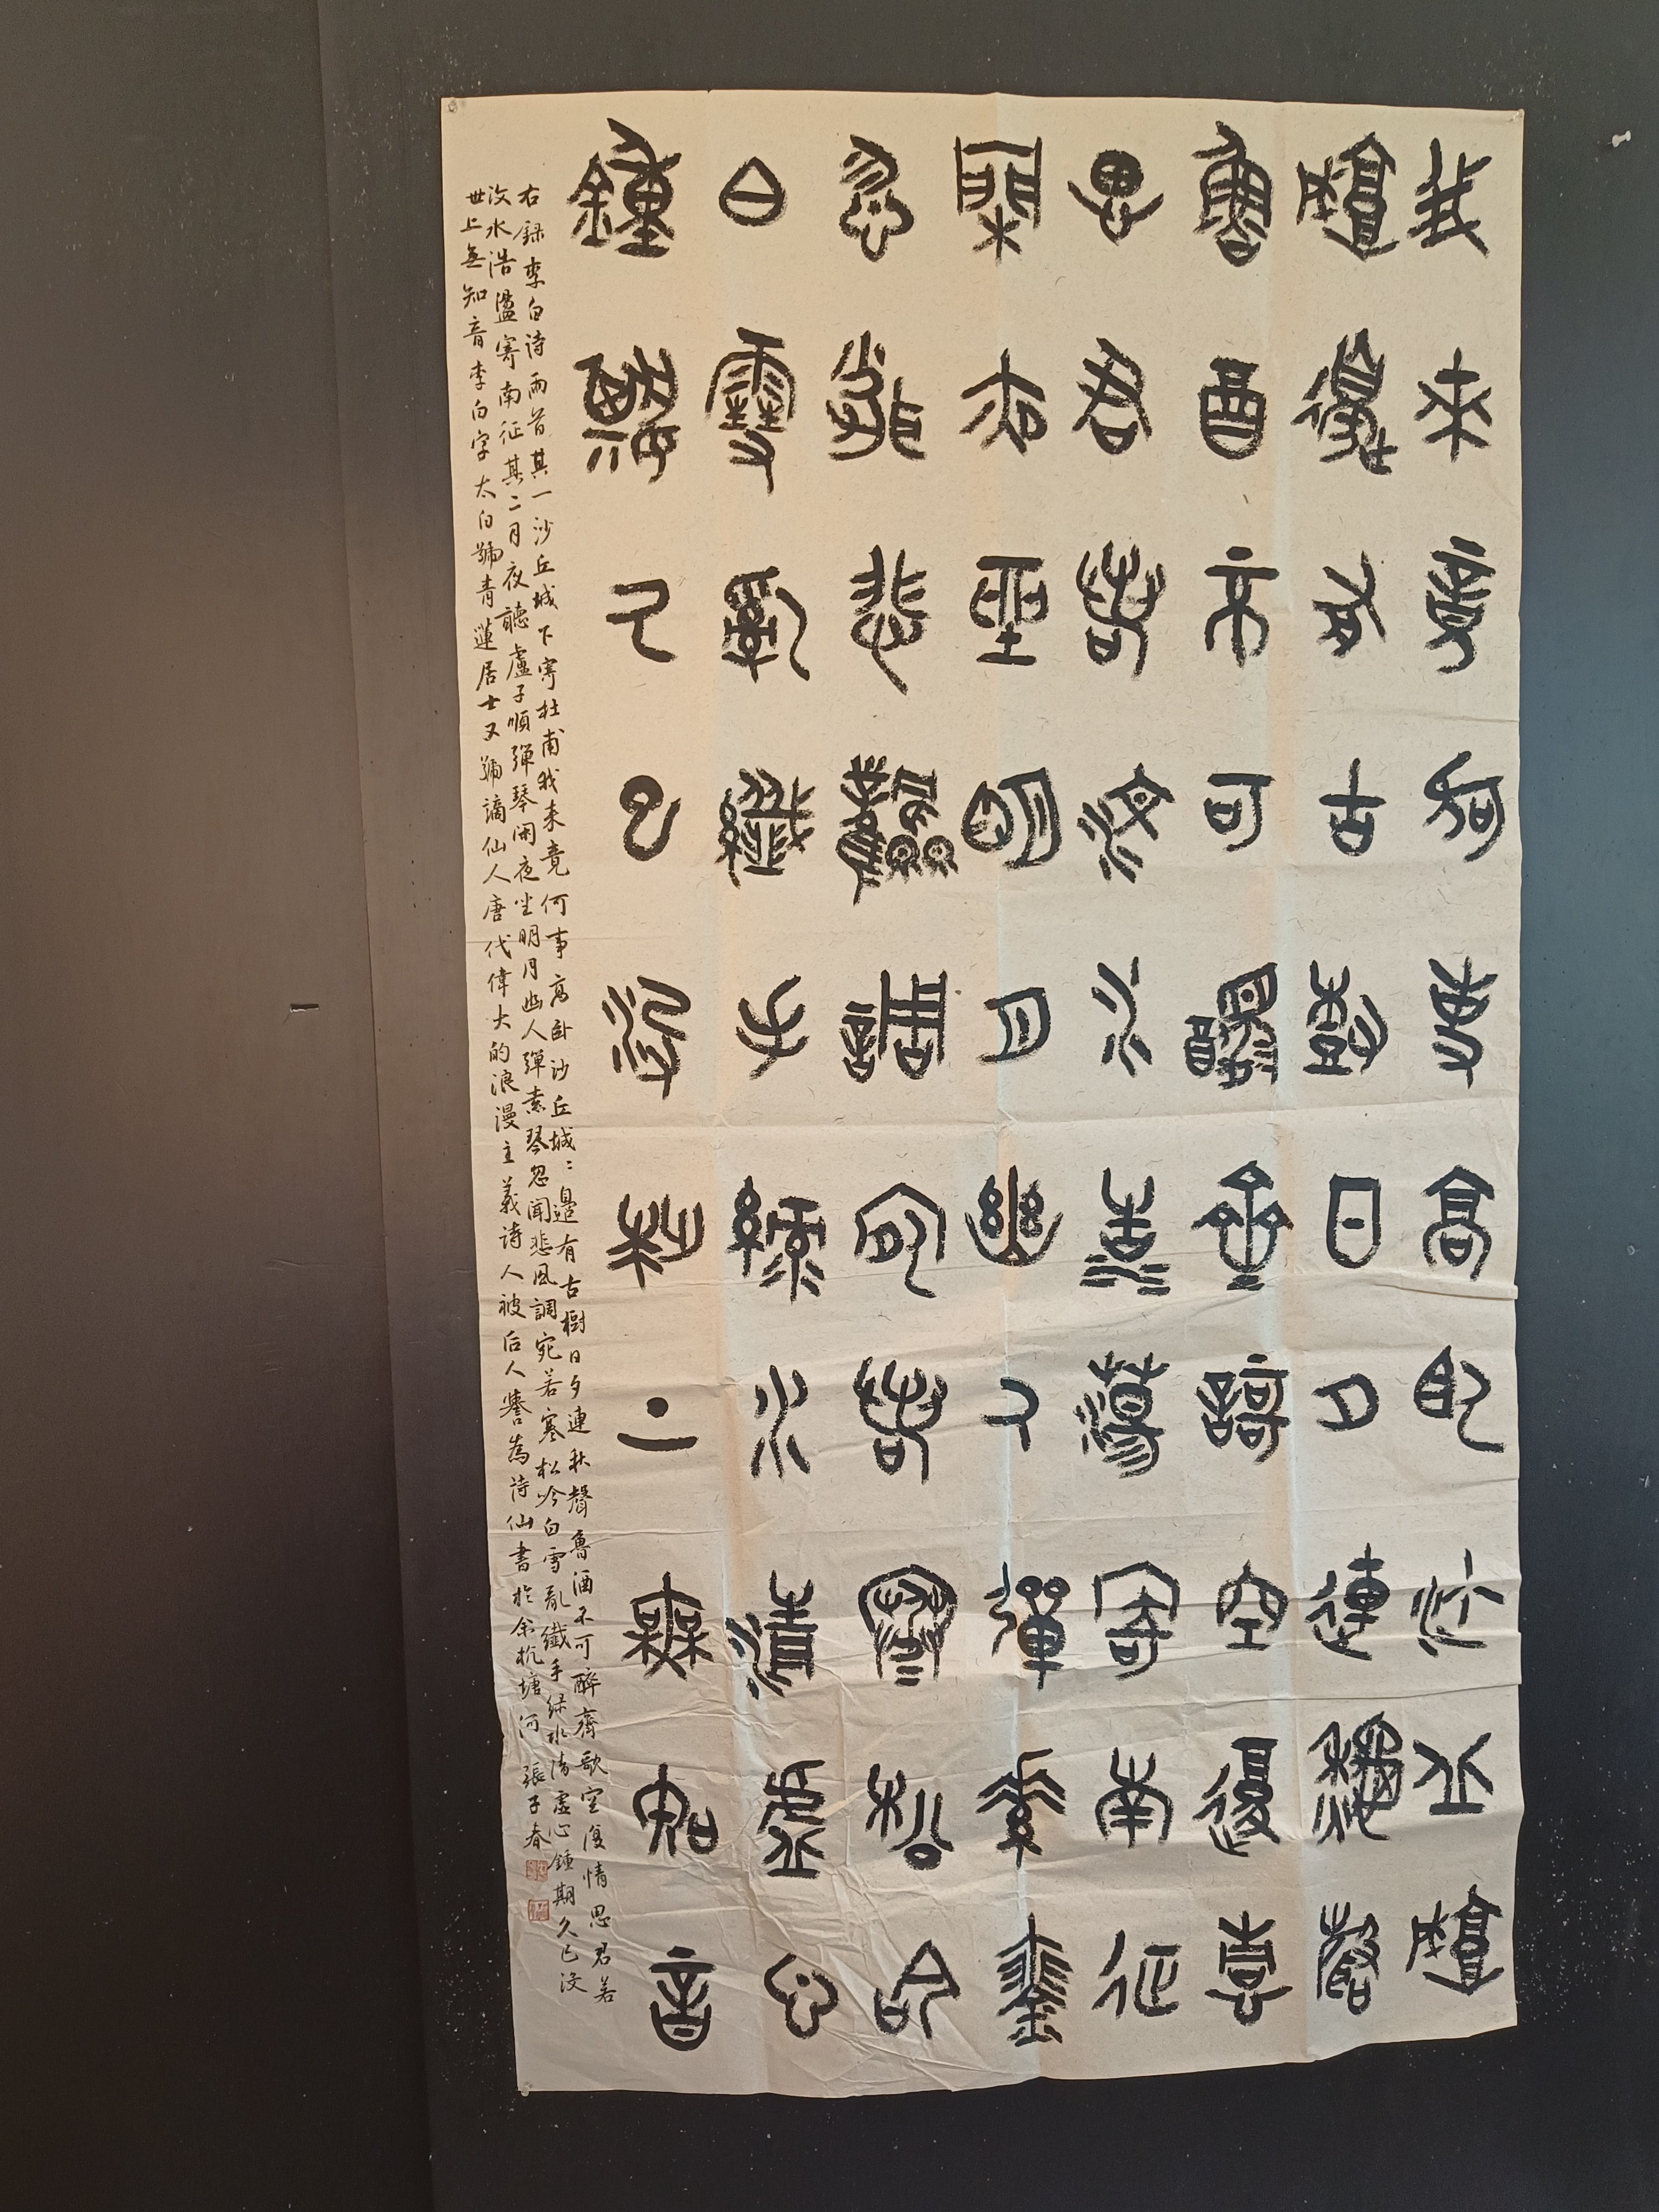 我來竟何事高臥沙丘城
城邊有古樹日夕連秋聲
魯酉不可醉齊歌空復情
思君若汶水浩蕩寄南征
閑夜坐明月幽人彈素琴
忽聞悲風調宛若寒松吟
白雪亂纖手綠水清虛心
鍾期久已沒世上無知音
右録李白诗兩首其一沙丘城下寄杜甫我来竟何事高卧沙丘城〻邊有古樹日夕連秋聲魯酒不可醉齊歌空復情思君若
汶水浩盪寄南征其二月夜聽盧子順彈琴閑夜坐明月幽人彈素琴忽闻悲風調宛若寒松吟白雪乱纖手绿水清虚心鍾期久已没
世上無知音李白字太白號青蓮居士又號謫仙人唐代偉大的浪漫主義詩人被后人譽為詩仙書於余杭塘河 張子春